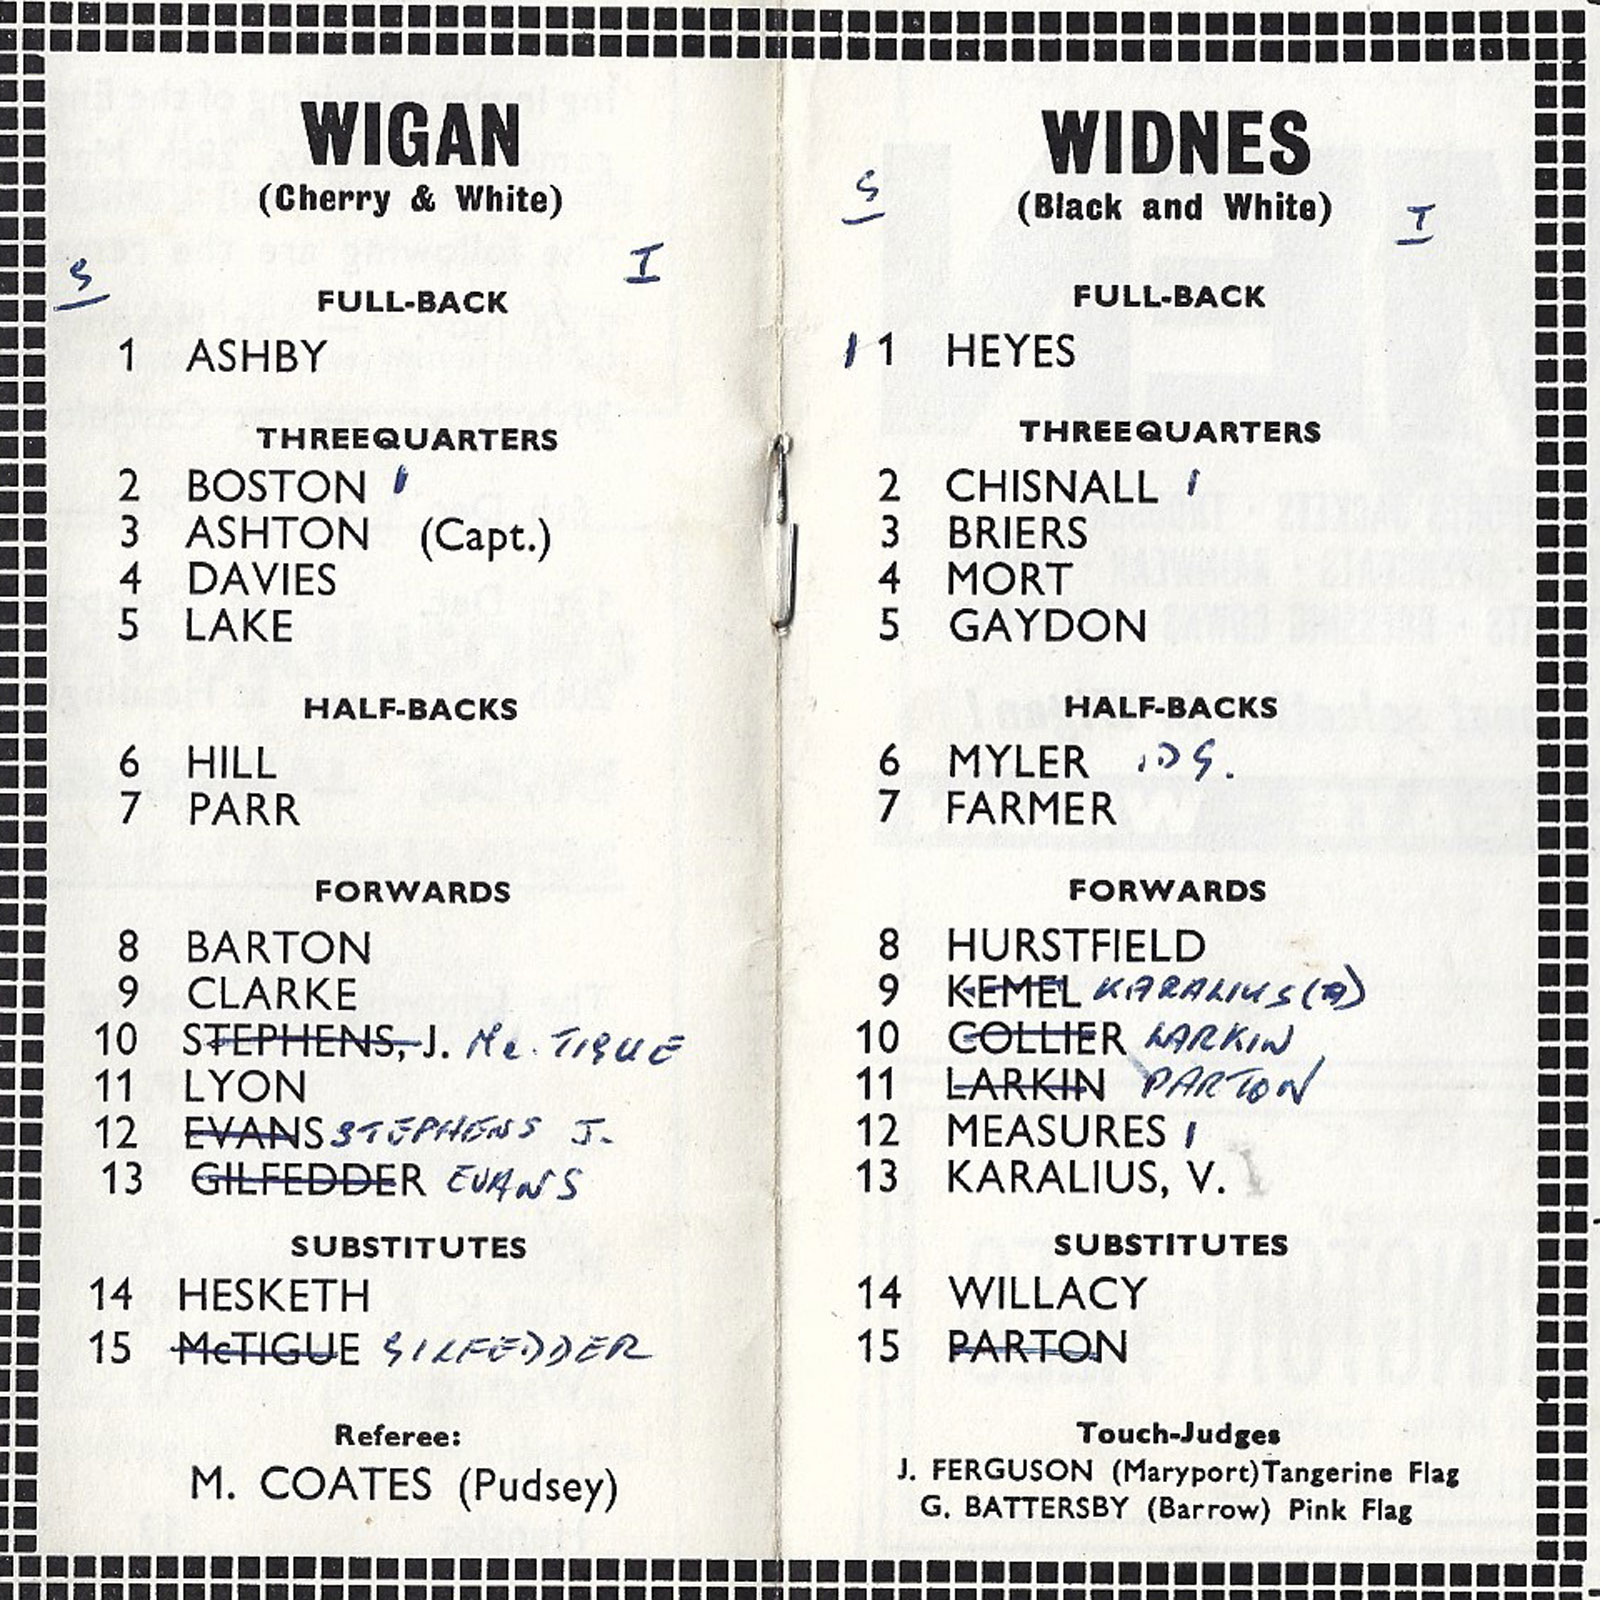 WIGAN
(Cherry & White)
S I
FULL-BACK
1 ASHBY
THREEQUARTERS
2 BOSTON 1
3 ASHTON (Capt.)
4 DAVIES
5 LAKE
HALF-BACKS
6 HILL
7 PARR
FORWARDS
8 BARTON
9 CLARKE
10 STEPHENS, J. Mc. TIGUE
11 LYON
12 EVANS STEPHENS J.
13 GILFEDDER EVANS
SUBSTITUTES
14 HESKETH
15 McTIGUE GILFEDDER
Referee:
M. COATES (Pudsey)
WIDNES
(Black and White)
S I
FULL-BACK
1 1 HEYES
THREEQUARTERS
2 CHISNALL 1
3 BRIERS
4 MORT
5 GAYDON
HALF-BACKS
6 MYLER 1DG.
7 FARMER
FORWARDS
8 HURSTFIELD
9 KEMEL KARALIUS (A)
10 COLLIER LARKIN
11 LARKIN PARTON
12 MEASURES 1
13 KARALIUS, V.
SUBSTITUTES
14 WILLACY
15 PARTON
Touch-Judges
J. FERGUSON (Maryport) Tangerine Flag
G. BATTERSBY (Barrow) Pink Flag